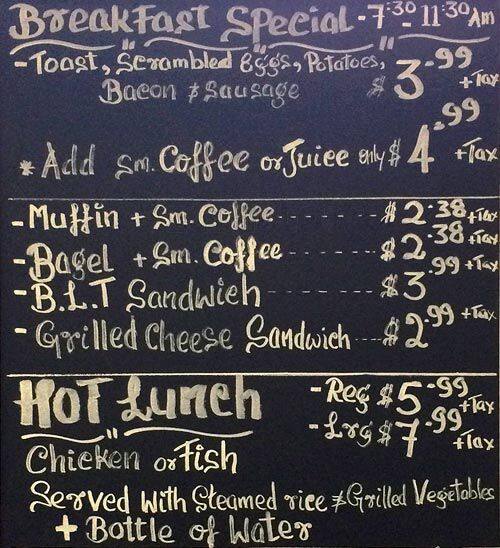 BreakFast Special - 7:30 - 11:30 Am
- Toast, Scrambled Eggs, Potatoes, $3.99 + Tax
Bacon & Sausage
* Add Sm. Coffee or Juice only $4.99 + Tax
- Muffin + Sm. Coffee ------- $2.38 + Tax
- Bagel + Sm. Coffee ------- $2.38 + Tax
- B.L.T Sandwich ------- $3.99 + Tax
- Grilled Cheese Sandwich --- $2.99 + Tax
HOT Lunch - Reg $5.99 + Tax
- Lrg $7.99 + Tax
Chicken or Fish
Served With Steamed rice & Grilled Vegetables
+ Bottle of Water